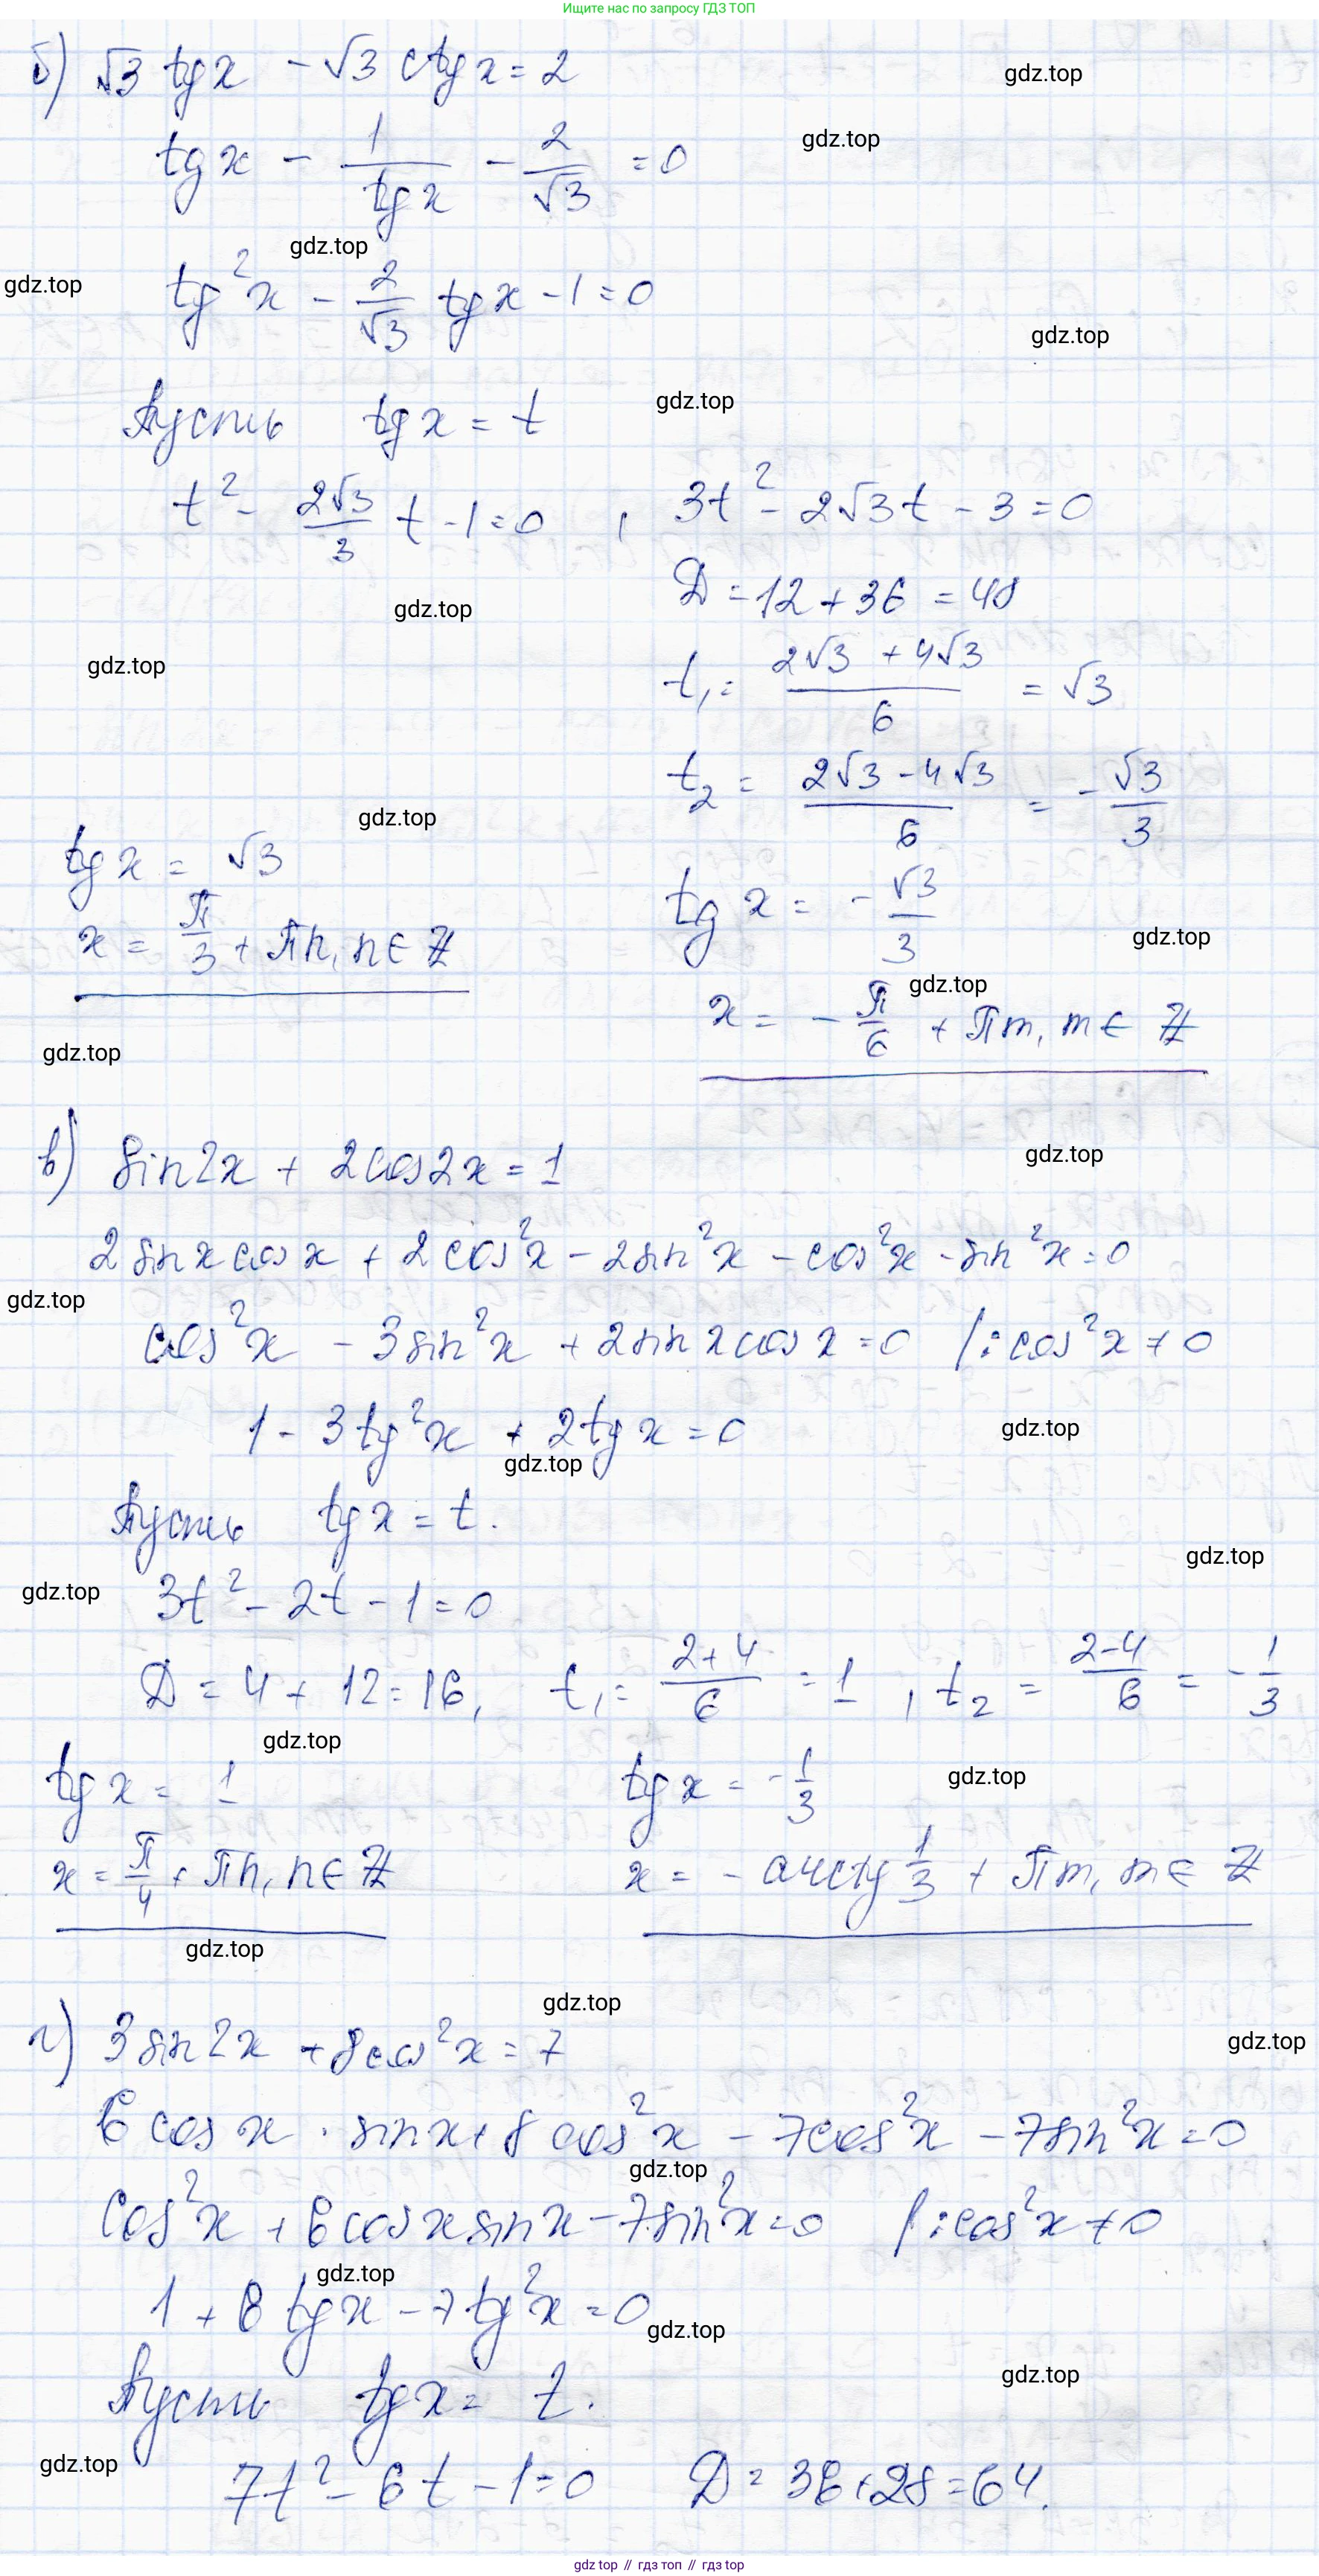 Ищите нас по запросу ГДЗ ТОП
б) √3 tgx - √3 ctgx = 2
gdz.top
gdz.top
tgx - 1/tgx - 2/√3 = 0
gdz.top
gdz.top
tg²x - 2/√3 tgx - 1 = 0
gdz.top
Пусть tgx = t
gdz.top
t² - 2√3/3 t - 1 = 0 , 3t² - 2√3t - 3 = 0
D = 12 + 36 = 48
gdz.top
gdz.top
t₁ = (2√3 + 4√3)/6 = √3
t₂ = (2√3 - 4√3)/6 = -√3/3
gdz.top
tgx = √3
tgx = -√3/3
x = π/3 + πn, n ∈ Z
gdz.top
gdz.top
x = -π/6 + πm, m ∈ Z
gdz.top
в) sin2x + 2cos2x = 1
gdz.top
2sinxcosx + 2cos²x - 2sin²x - cos²x - sin²x = 0
gdz.top
cos²x - 3sin²x + 2sinxcosx = 0 /: cos²x ≠ 0
1 - 3tg²x + 2tgx = 0
gdz.top
gdz.top
Пусть tgx = t.
gdz.top
gdz.top
3t² - 2t - 1 = 0
D = 4 + 12 = 16, t₁ = (2+4)/6 = 1 , t₂ = (2-4)/6 = -1/3
gdz.top
gdz.top
tgx = 1 tgx = -1/3
x = π/4 + πn, n ∈ Z x = -arctg 1/3 + πm, m ∈ Z
gdz.top
gdz.top
г) 3sin2x + 8cos²x = 7
gdz.top
6cosx · sinx + 8cos²x - 7cos²x - 7sin²x = 0
gdz.top
cos²x + 6cosxsinx - 7sin²x = 0 /: cos²x ≠ 0
gdz.top
1 + 6tgx - 7tg²x = 0
gdz.top
gdz.top
Пусть tgx = t.
gdz.top
7t² - 6t - 1 = 0 D = 36 + 28 = 64.
gdz top // гдз топ // gdz top